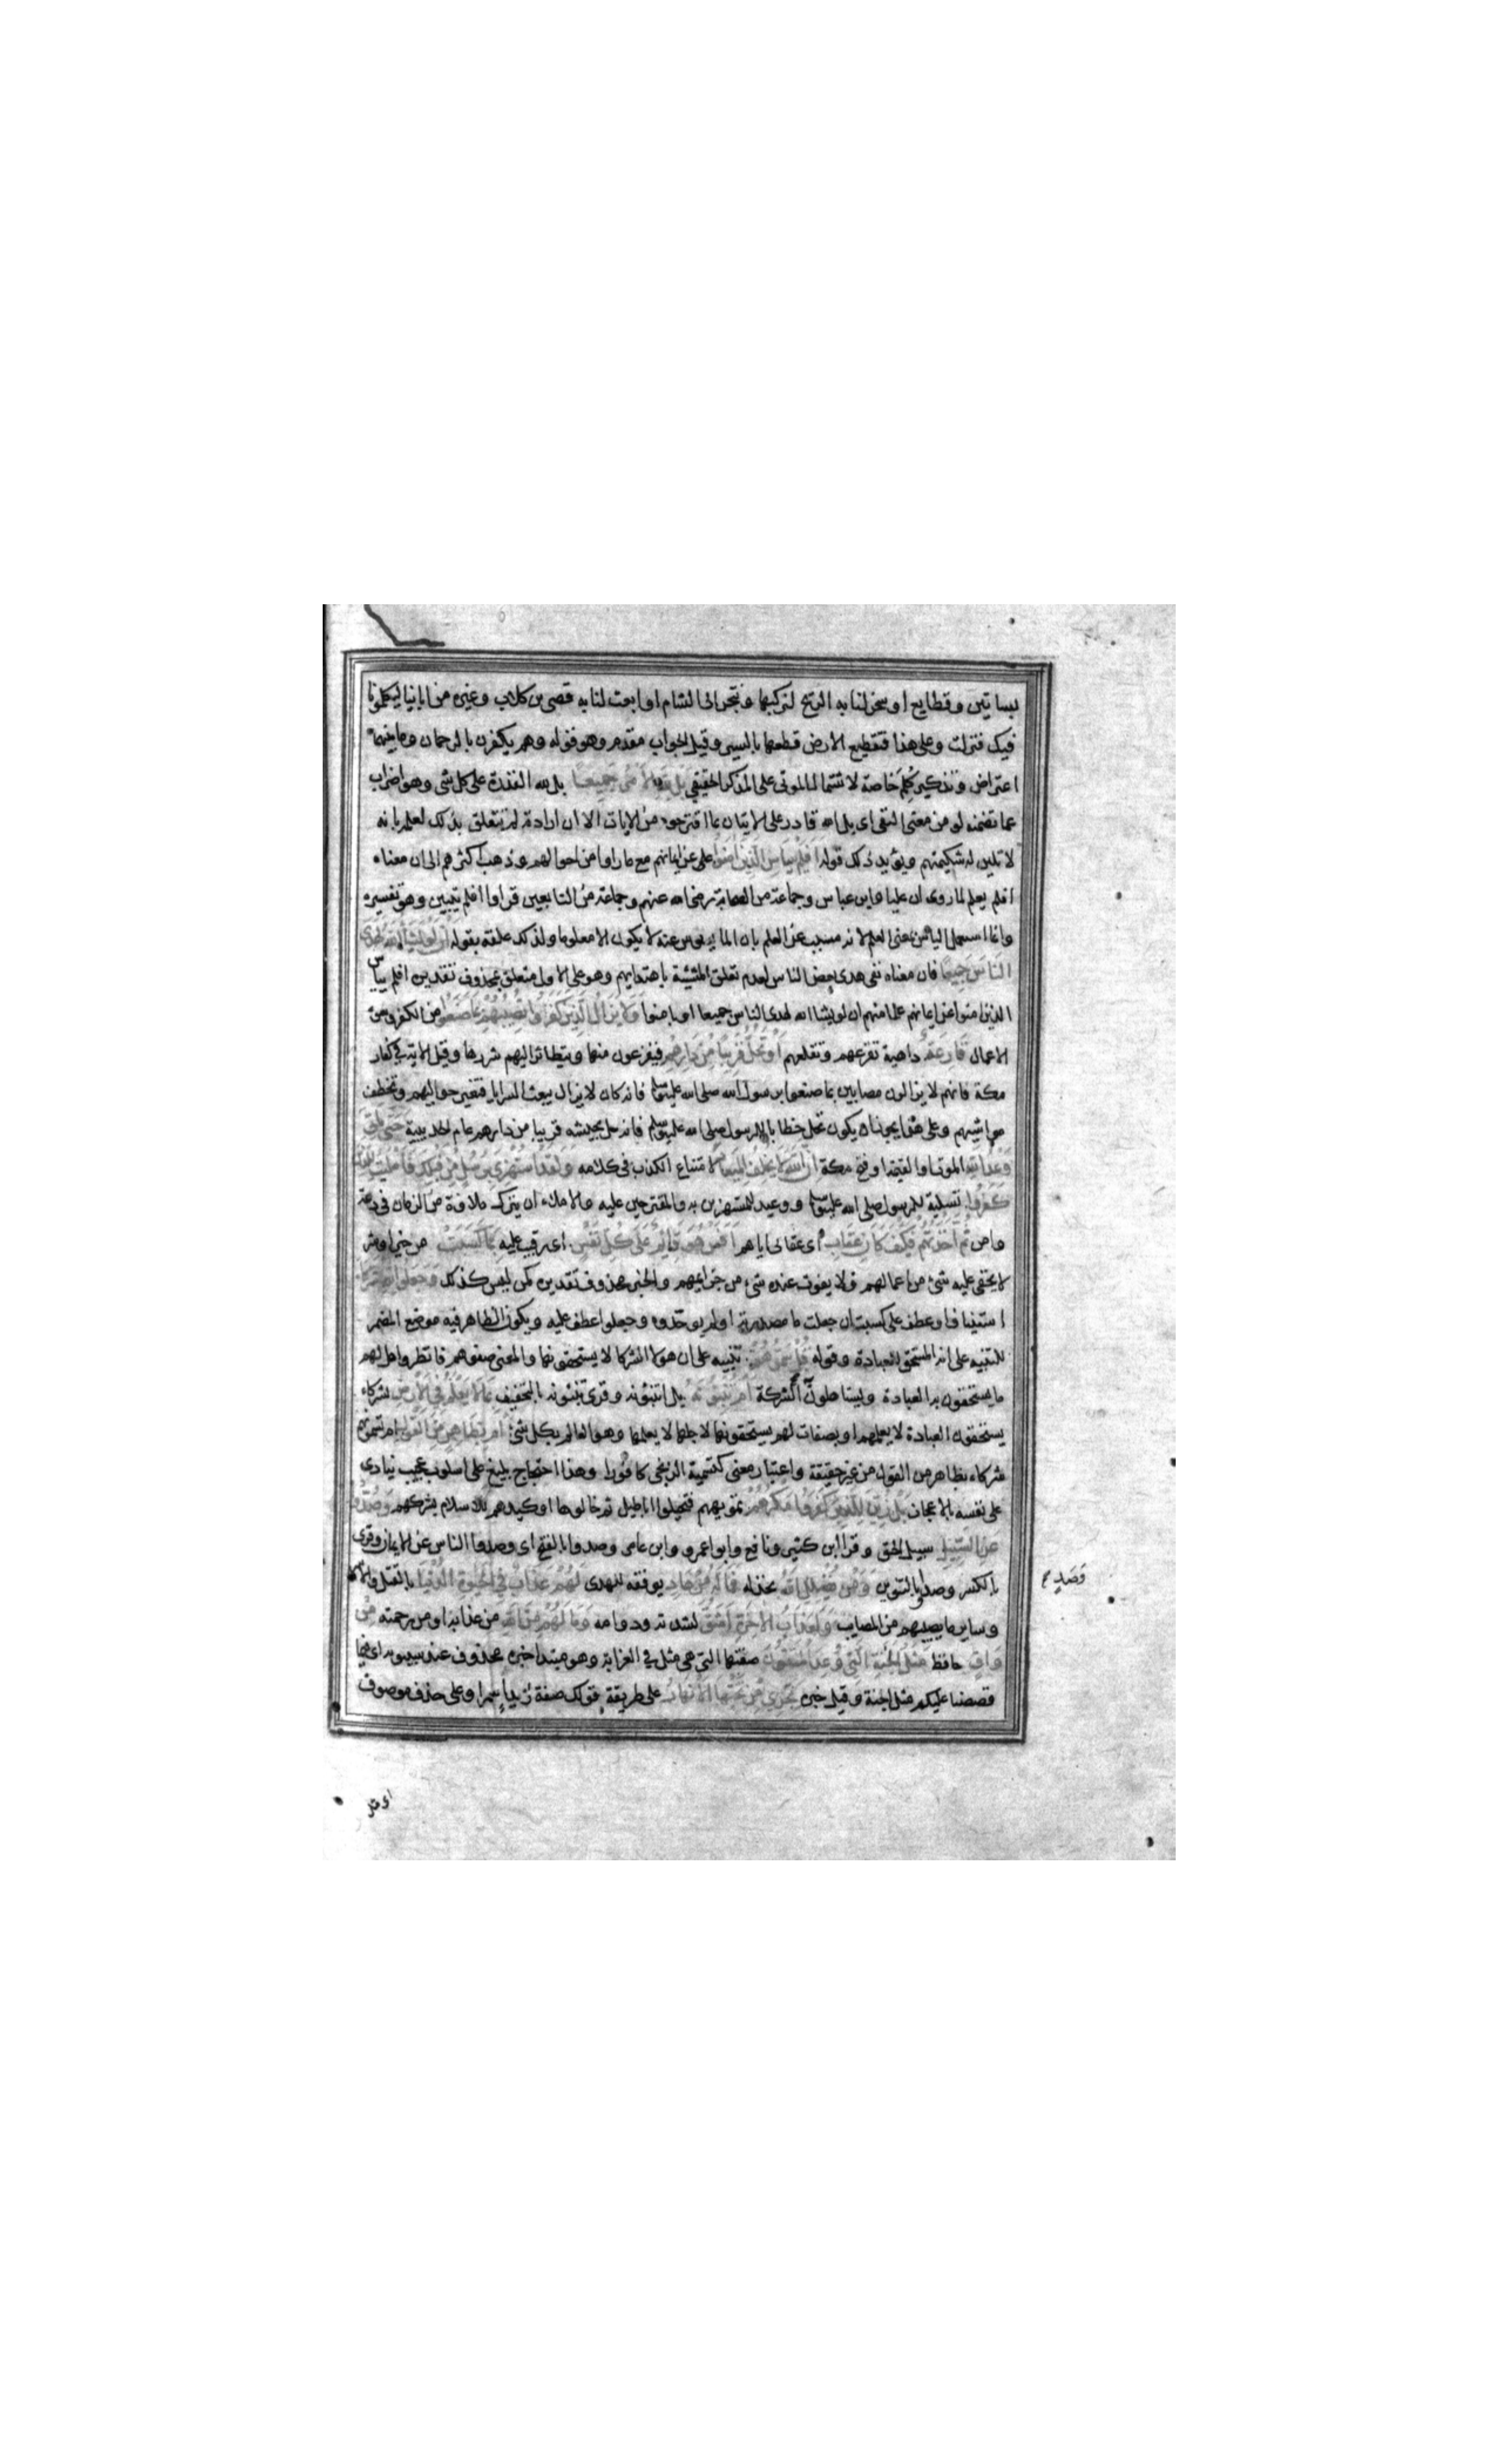 بساتين وقطايع او سخر لنا به الريح لنركبها ونتجر الى الشام او ابعث لنا به قصى بن كلاب وغيره من ابائنا ليكلمونا
فيك فنزلت وعلى هذا فتقطيع الارض قطعها بالسير وقيل الجواب مقدم وهو قوله وهم يكفرون بالرحمان وما بينهما
اعتراض وتذكير كلم خاصة لاشتمال الموتى على المذكر الحقيقي بل لله الامر جميعا بل لله القدرة على كل شى وهو اضراب
عما تضمنه لو من معنى النفى اى بل الله قادر على الاتيان بما اقترحوه من الايات الا ان ارادته لم تتعلق بذلك لعلمه بانه
لا تلين له شكيمتهم ويؤيد ذلك قوله افلم ييأس الذين امنوا عن ايمانهم مع ما راوا من احوالهم وذهب اكثرهم الى ان معناه
افلم يعلم لما روى ان عليا وابن عباس وجماعة من الصحابة رضى الله عنهم وجماعة من التابعين قراوا افلم يتبين وهو تفسيره
وانما استعمل الياس بمعنى العلم لانه مسبب عن العلم بان المايوس عنه لا يكون الا معلوما ولذلك علقه بقوله ان لو يشاء الله لهدى
الناس جميعا فان معناه نفى هدى بعض الناس لعدم تعلق المشيئة باهتدايهم وهو على الاول متعلق بمحذوف تقديره افلم ييأس
الذين امنوا عن ايمانهم علما منهم ان لو يشاء الله لهدى الناس جميعا او بامنوا ولا يزال الذين كفروا تصيبهم بما صنعوا من الكفر وسوء
الاعمال قارعة داهية تقرعهم وتقلعهم او تحل قريبا من دارهم فيفزعون منها ويتطاير اليهم شررها وقيل الاية في كفار
مكة فانهم لا يزالون مصابين بما صنعوا برسول الله صلى الله عليه وسلم فانه كان لا يزال يبعث السرايا فتغير حواليهم وتخطف
مواشيهم وعلى هذا يجوز ان يكون تحل خطابا للرسول صلى الله عليه وسلم فانه حل بجيشه قريبا من دارهم عام الحديبية حتى ياتى
وعد الله الموت او القيمة او فتح مكة ان الله لا يخلف الميعاد لامتناع الكذب فى كلامه ولقد استهزئ برسل من قبلك فامليت للذين
كفروا تسلية للرسول صلى الله عليه وسلم ووعيد للمستهزئين به والمقترحين عليه والاملاء ان يترك ملاوة من الزمان فى دعة
وامن ثم اخذتهم فكيف كان عقاب اى عقابى اياهم افمن هو قائم على كل نفس اى رقيب عليه بما كسبت من خير او شر
لا يخفى عليه شئ من اعمالهم ولا يفوت عنده شئ من جزايهم والخبر محذوف تقديره كمن ليس كذلك وجعلوا لله شركاء
استيناف او عطف على كسبت ان جعلت ما مصدرية او لم يوحدوه وجعلوا عطف عليه ويكون الظاهر فيه موضع المضمر
للتنبيه على انه المستحق للعبادة وقوله قل سموهم تنبيه على ان هولا الشركا لا يستحقونها والمعنى صفوهم فانظروا هل لهم
ما يستحقون به العبادة ويستاهلون الشركة ام تنبئونه بل اتنبئونه وقرى تنبئونه بالتخفيف بما لا يعلم في الارض بشركاء
يستحقون العبادة لا يعلمهم او بصفات لهم يستحقونها لاجلها لا يعلمها وهو العالم بكل شئ ام بظاهر من القول ام تسمونهم
شركاء بظاهر من القول من غير حقيقة واعتبار معنى كتسمية الزنجى كافورا وهذا احتجاج بليغ على اسلوب عجيب ينادى
على نفسه بالاعجاز بل زين للذين كفروا مكرهم تمويههم فتخيلوا اباطيل ثم خالوها او كيدهم للاسلام بشركهم وصدوا
عن السبيل سبيل الحق وقرا ابن كثير ونافع وابو عمرو وابن عامر وصدوا بالفتح اى وصدوا الناس عن الايمان وقرى
بالكسر وصد بالتنوين ومن يضلل الله يخذله فما له من هاد يوفقه للهدى لهم عذاب في الحيوة الدنيا بالقتل والاسر
وساير ما يصيبهم من المصايب ولعذاب الاخرة اشق لشدته ودوامه وما لهم من الله من عذابه او من رحمته من
واق حافظ مثل الجنة التي وعد المتقون صفتها التى هى مثل في الغرابة وهو مبتدا خبره محذوف عند سيبويه اى فيما
قصصنا عليكم مثل الجنة وقيل خبره تجري من تحتها الانهار على طريقة قولك صفة زيد اسمر او على حذف موصوف
وصد م
اى مثل